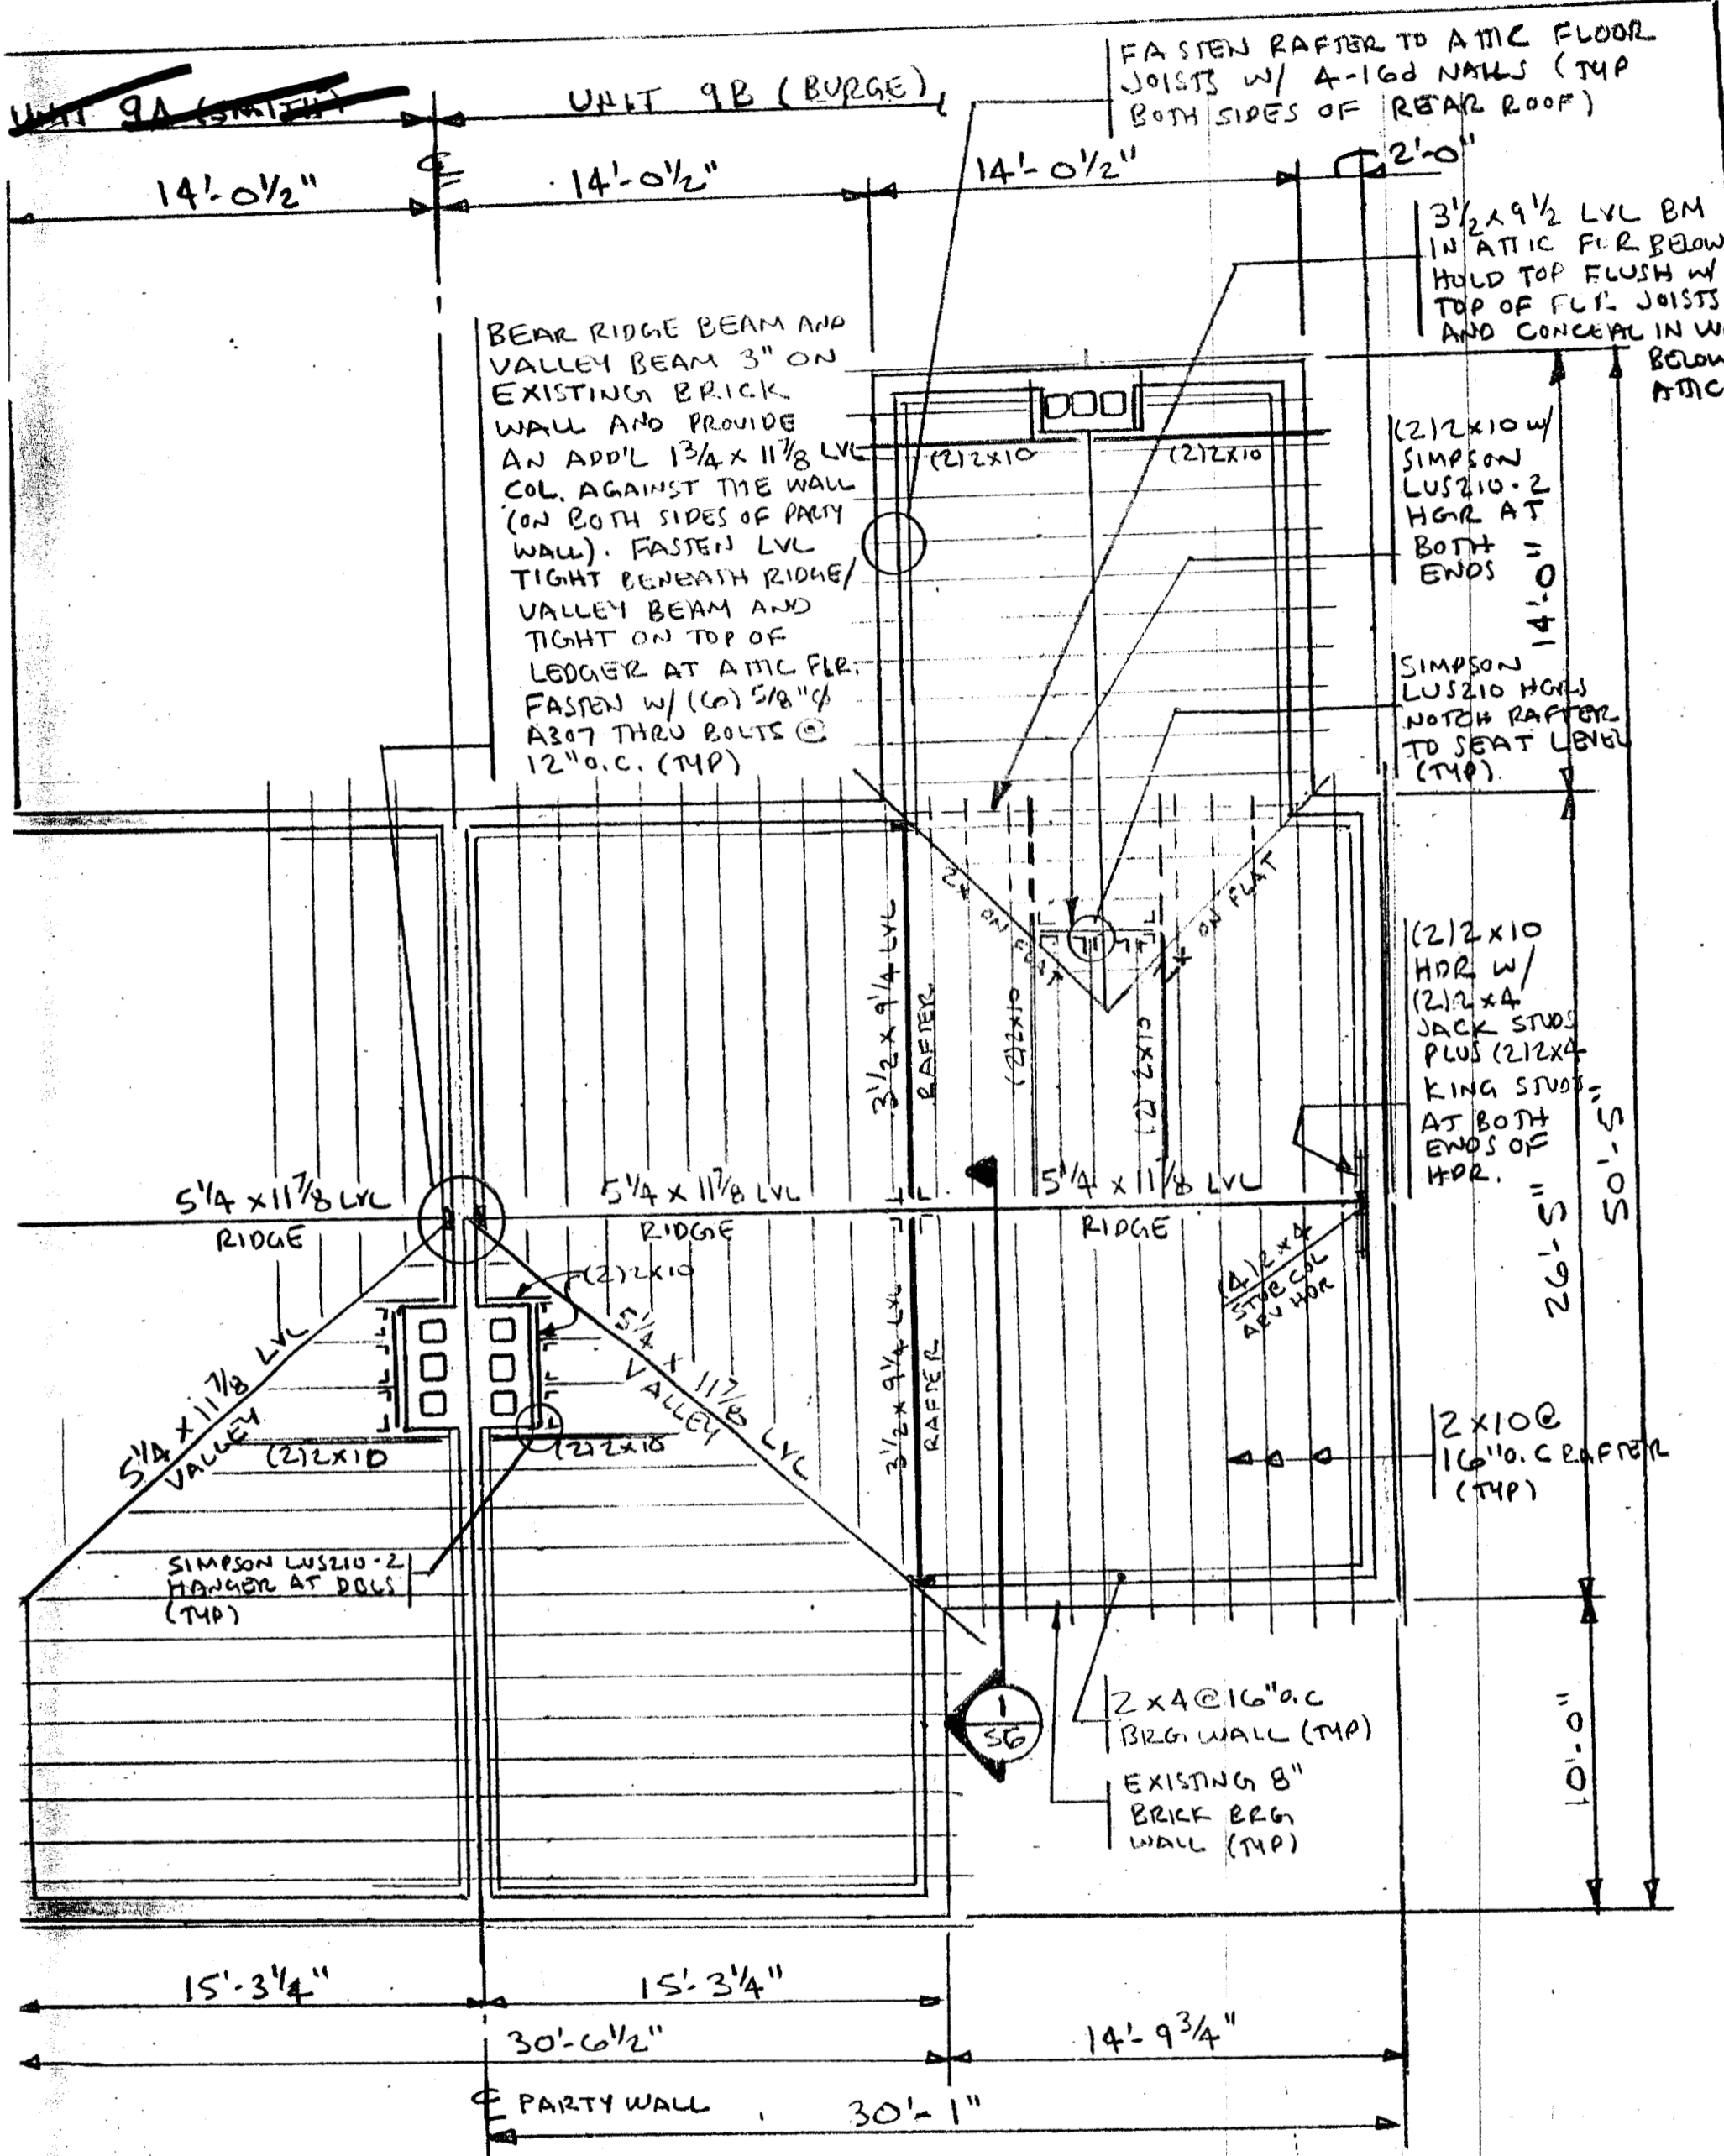 FASTEN RAFTER TO ATTIC FLOOR
JOISTS W/ 4-16d NAILS (TYP
BOTH SIDES OF REAR ROOF)
UNIT 9A (SMITH)
UNIT 9B (BURGE)
14'-0½"
14'-0½"
14'-0½"
2'-0"
3½ x 9½ LVL BM
IN ATTIC FLR BELOW
HOLD TOP FLUSH W/
TOP OF FLR JOISTS
AND CONCEAL IN
BELOW
ATTIC
BEAR RIDGE BEAM AND
VALLEY BEAM 3" ON
EXISTING BRICK
WALL AND PROVIDE
AN ADD'L 1¾ x 11⅞ LVL
COL. AGAINST THE WALL
(ON BOTH SIDES OF PARTY
WALL). FASTEN LVL
TIGHT BENEATH RIDGE/
VALLEY BEAM AND
TIGHT ON TOP OF
LEDGER AT ATTIC FLR.
FASTEN W/ (6) 5/8"φ
A307 THRU BOLTS @
12" O.C. (TYP)
(2)2x10
(2)2x10
(2)2x10 W/
SIMPSON
LUS210-2
HGR AT
BOTH
ENDS
14'-0"
SIMPSON
LUS210 HGRS
NOTCH RAFTER
TO SEAT LEVEL
(TYP)
2x ON FLAT
2x ON FLAT
3½ x 9¼ LVL
RAFTER
(2)2x10
(2) 2x10
(2)2x10
HDR W/
(2)2x4
JACK STUDS
PLUS (2)2x4
KING STUDS
AT BOTH
ENDS OF
HDR.
50'-5"
26'-5"
5¼ x 11⅞ LVL
RIDGE
5¼ x 11⅞ LVL
RIDGE
5¼ x 11⅞ LVL
RIDGE
(2)2x10
(4)2x4
STUB COL
ABV HDR
5¼ x 11⅞ LVL
VALLEY
5¼ x 11⅞ LVL
VALLEY
3½ x 9¼ LVL
RAFTER
(2)2x10
(2)2x10
2x10@
16"O.C RAFTER
(TYP)
SIMPSON LUS210-2
HANGER AT DBLS
(TYP)
1
S6
2x4@16"O.C
BRG WALL (TYP)
EXISTING 8"
BRICK BRG
WALL (TYP)
10'-0"
15'-3¼"
15'-3¼"
30'-6½"
14'-9¾"
℄ PARTY WALL
30'-1"